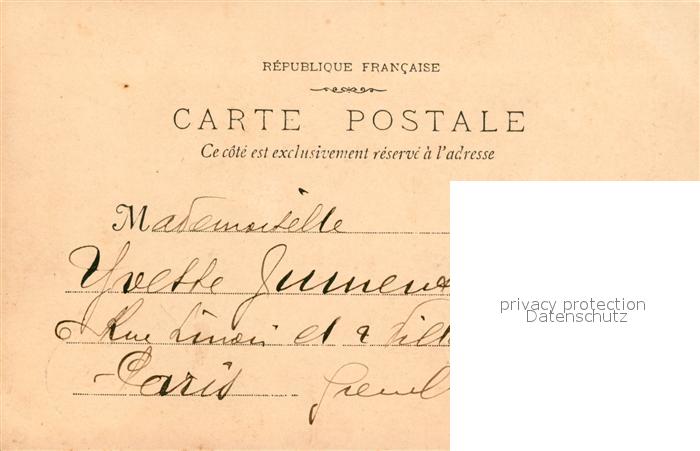 RÉPUBLIQUE FRANÇAISE
CARTE POSTALE
Ce côté est exclusivement réservé à l'adresse
Mademoiselle
Yvette
6 Rue Linois et
Paris
privacy protection
Datenschutz